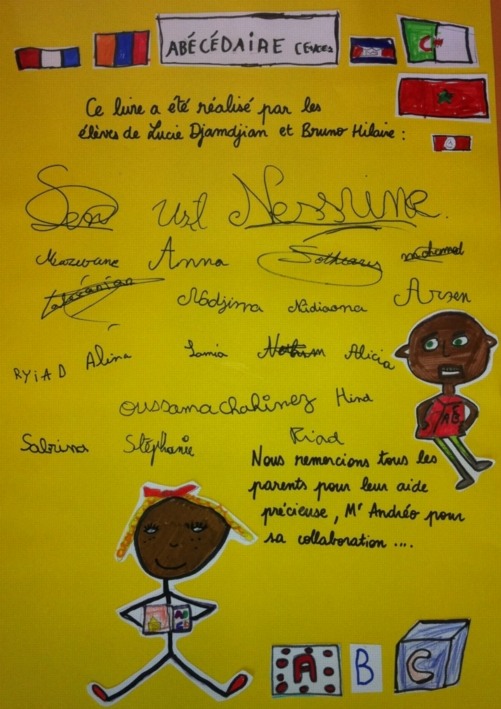 ABÉCÉDAIRE
Ce livre a été réalisé par les
élèves de Lucie Djamdjian et Bruno Hilaire :
Nessrine
Anna
Nadjma Nidiaona Arsen
RYiAD Alina Lamia Alicia
oussama chahinez Hind
Sabrina Stéphanie Riad
Nous remercions tous les
parents pour leur aide
précieuse, Mr Andréo pour
sa collaboration ....
A B C